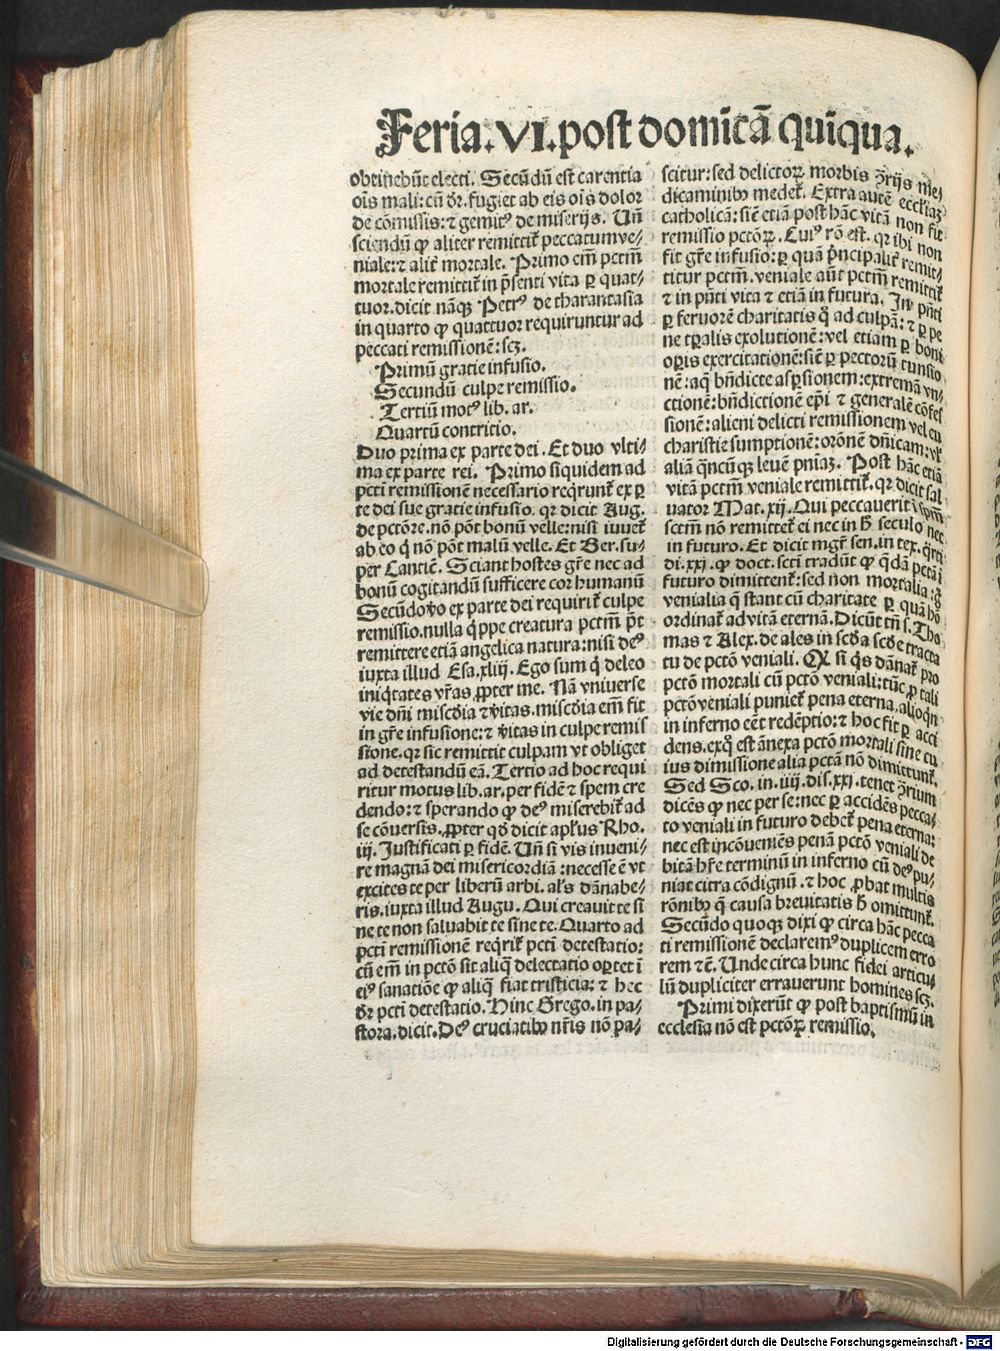 Feria.VI.post domĩcã quĩqua.
obtinebũt electi. Secũdũ est carentia
oĩs mali: cũ dr̃. fugiet ab eis oĩs dolor
de cõmissis: ⁊ gemitꝰ de miserijs. Uñ
sciendũ ꝙ aliter remittit᷑ peccatum ve-
niale: ⁊ alit̃ mortale. Primo em̃ pctm̃
mortale remittit᷑ in p̃senti vita ꝑ quat-
tuor. dicit nãqꝫ Petrꝰ de tharantasia
in quarto ꝙ quattuor requiruntur ad
peccati remissionẽ: scꝫ.
Primũ gratie infusio.
Secundũ culpe remissio.
Tertiũ motꝰ lib. ar.
Quartũ contritio.
Duo prima ex parte dei. Et duo vlti-
ma ex parte rei. Primo siquidem ad
pcti remissionẽ necessario reqrunt᷑ ex ꝑ
te dei sue gratie infusio. qꝛ dicit Aug.
de pctõre. nõ põt bonũ velle: nisi iuuet᷑
ab eo q̃ nõ põt malũ velle. Et Ber. su-
per Cantiẽ. Sciant hostes gr̃e nec ad
bonũ cogitandũ sufficere cor humanũ
Secũdo ṽo ex parte dei requirit᷑ culpe
remissio. nulla q̃ppe creatura pctm̃ p̃t
remittere etiã angelica natura: nisi deꝰ
iuxta illud Esa. xliij. Ego sum q̃ deleo
iniq̃tates vr̃as ꝓpter me. Nã vniuerse
vie dñi miscðia ⁊ ṽitas. miscðia em̃ fit
in gr̃e infusione: ⁊ ṽitas in culpe remis
sione. qꝛ sic remittit culpam vt obliget
ad detestandũ eã. Tertio ad hoc requi
ritur motus lib. ar. per fidẽ ⁊ spem cre
dendo: ⁊ sperando ꝙ deꝰ miserebit᷑ ad
se cõuersis. ꝓpter qð dicit apl̃us Rho.
iij. Justificati ꝑ fidẽ. Uñ si vis inueni-
re magnã dei misericordiã: necesse ẽ vt
excites te per liberũ arbi. al̃s dãnabe-
ris. iuxta illud Augu. Qui creauit te si
ne te non saluabit te sine te. Quarto ad
pcti remissionẽ reqrit᷑ pcti detestatio:
cũ em̃ in pctõ sit aliq̃ delectatio oꝑtet ĩ
eiꝰ sanatiõe ꝙ aliq̃ fiat tristicia: ⁊ hec
dr̃ pcti detestatio. Hinc Grego. in pa-
stora. dicit. Deꝰ cruciatibꝰ nr̃is nõ pa-
scitur: sed delictoꝝ morbis ꝯr̃ijs me-
dicaminibꝰ medet᷑. Extra autẽ eccl̃iaꝫ
catholicã: sic̃ etiã post hãc vitã non fit
remissio pctõꝝ. Cuiꝰ rõ est. qꝛ ibi non
fit gr̃e infusio: ꝑ quã p̃ncipalit̃ remit-
titur pctm̃. veniale aũt pctm̃ remittit᷑
⁊ in p̃nti vita ⁊ etiã in futura. In p̃nti
ꝑ feruorẽ charitatis q̃ ad culpã: ⁊ ꝑ pe
ne tꝑalis exolutionẽ: vel etiam ꝑ boni
oꝑis exercitationẽ: sic̃ ꝑ pectorũ tunsio
nẽ: aq̃ bñdicte asꝑsionem: extremã vn-
ctionẽ: bñdictionẽ ep̃i ⁊ generalẽ cõfes
sionẽ: alieni delicti remissionem vel eu
charistie sumptionẽ: orõnẽ dñicam: vl̃
aliã q̃ncũqꝫ leuẽ pniaꝫ. Post hãc etiã
vitã pctm̃ veniale remittit᷑. qꝛ dicit sal
uator Mat. xij. Qui peccauerit ĩ sp̃m̃
sctm̃ nõ remittet᷑ ei nec in h̃ seculo nec
in futuro. Et dicit mgr̃ sen. in tex. q̃rti
di. xxj. ꝙ doct. scti tradũt ꝙ q̃dã pctã ĩ
futuro dimittent᷑: sed non mortalia: g̃
venialia q̃ stant cũ charitate ꝑ quã hõ
ordinat᷑ ad vitã eternã. Dicũt tñ s. Tho
mas ⁊ Alex. de ales in scða scðe tracta
tu de pctõ veniali. Qꝫ si q̃s dãnat᷑ pro
pctõ mortali cũ pctõ veniali: tũc ꝓ tali
pctõ veniali puniet᷑ pena eterna. alioq̃n
in inferno eẽt redẽptio: ⁊ hoc fit ꝑ acci
dens. ex q̊ est ãnexa pctõ mortali sine cu
ius dimissione alia pctã nõ dimittunt᷑.
Sed Sco. in. iiij. dis. xxj. tenet ꝯrium
dicẽs ꝙ nec per se: nec ꝑ accidẽs pecca-
to veniali in futuro debet᷑ pena eterna:
nec est incõueniẽs penã pctõ veniali de
bitã hr̃e terminũ in inferno cũ deꝰ pu-
niat citra cõdignũ. ⁊ hoc ꝓbat multis
rõnibꝰ q̃ causa breuitatis h̃ omittunt᷑.
Secũdo quoqꝫ dixi ꝙ circa hãc pecca
ti remissionẽ declaremꝰ duplicem erro
rem ⁊c̃. Unde circa hunc fidei articu-
lũ dupliciter errauerunt homines scꝫ.
Primi dixerũt ꝙ post baptismũ in
ecclesia nõ est pctõꝝ remissio.
Digitalisierung gefördert durch die Deutsche Forschungsgemeinschaft - DFG